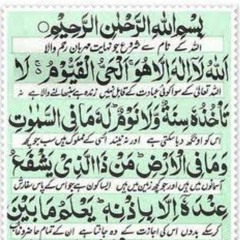 بِسْمِ اللّٰهِ الرَّحْمٰنِ الرَّحِيْمِ
اللہ کے نام سے شروع جو نہایت مہربان رحم والا
اَللّٰهُ لَاۤ اِلٰهَ اِلَّا هُوَ ۚ اَلْحَيُّ الْقَيُّوْمُ ۚ لَا
اللہ تعالیٰ کے سوا کوئی عبادت کے قابل نہیں زندہ ہے سنبھالنے والا ہے نہ
تَاْخُذُهٗ سِنَةٌ وَّلَا نَوْمٌ ؕ لَهٗ مَا فِي السَّمٰوٰتِ
اس کو اونگھ دبا سکتی ہے اور نہ نیند اسی کے مملوک ہیں سب جو کچھ
وَمَا فِي الْاَرْضِ ؕ مَنْ ذَا الَّذِيْ يَشْفَعُ
آسمانوں میں ہیں اور جو کچھ زمین میں ہیں ایسا کون ہے جو اس کے پاس سفارش
عِنْدَهٗۤ اِلَّا بِاِذْنِهٖ ؕ يَعْلَمُ مَا بَيْنَ
کرسکے بدوں اس کی اجازت کے وہ جانتا ہے ان کے تمام حاضر و